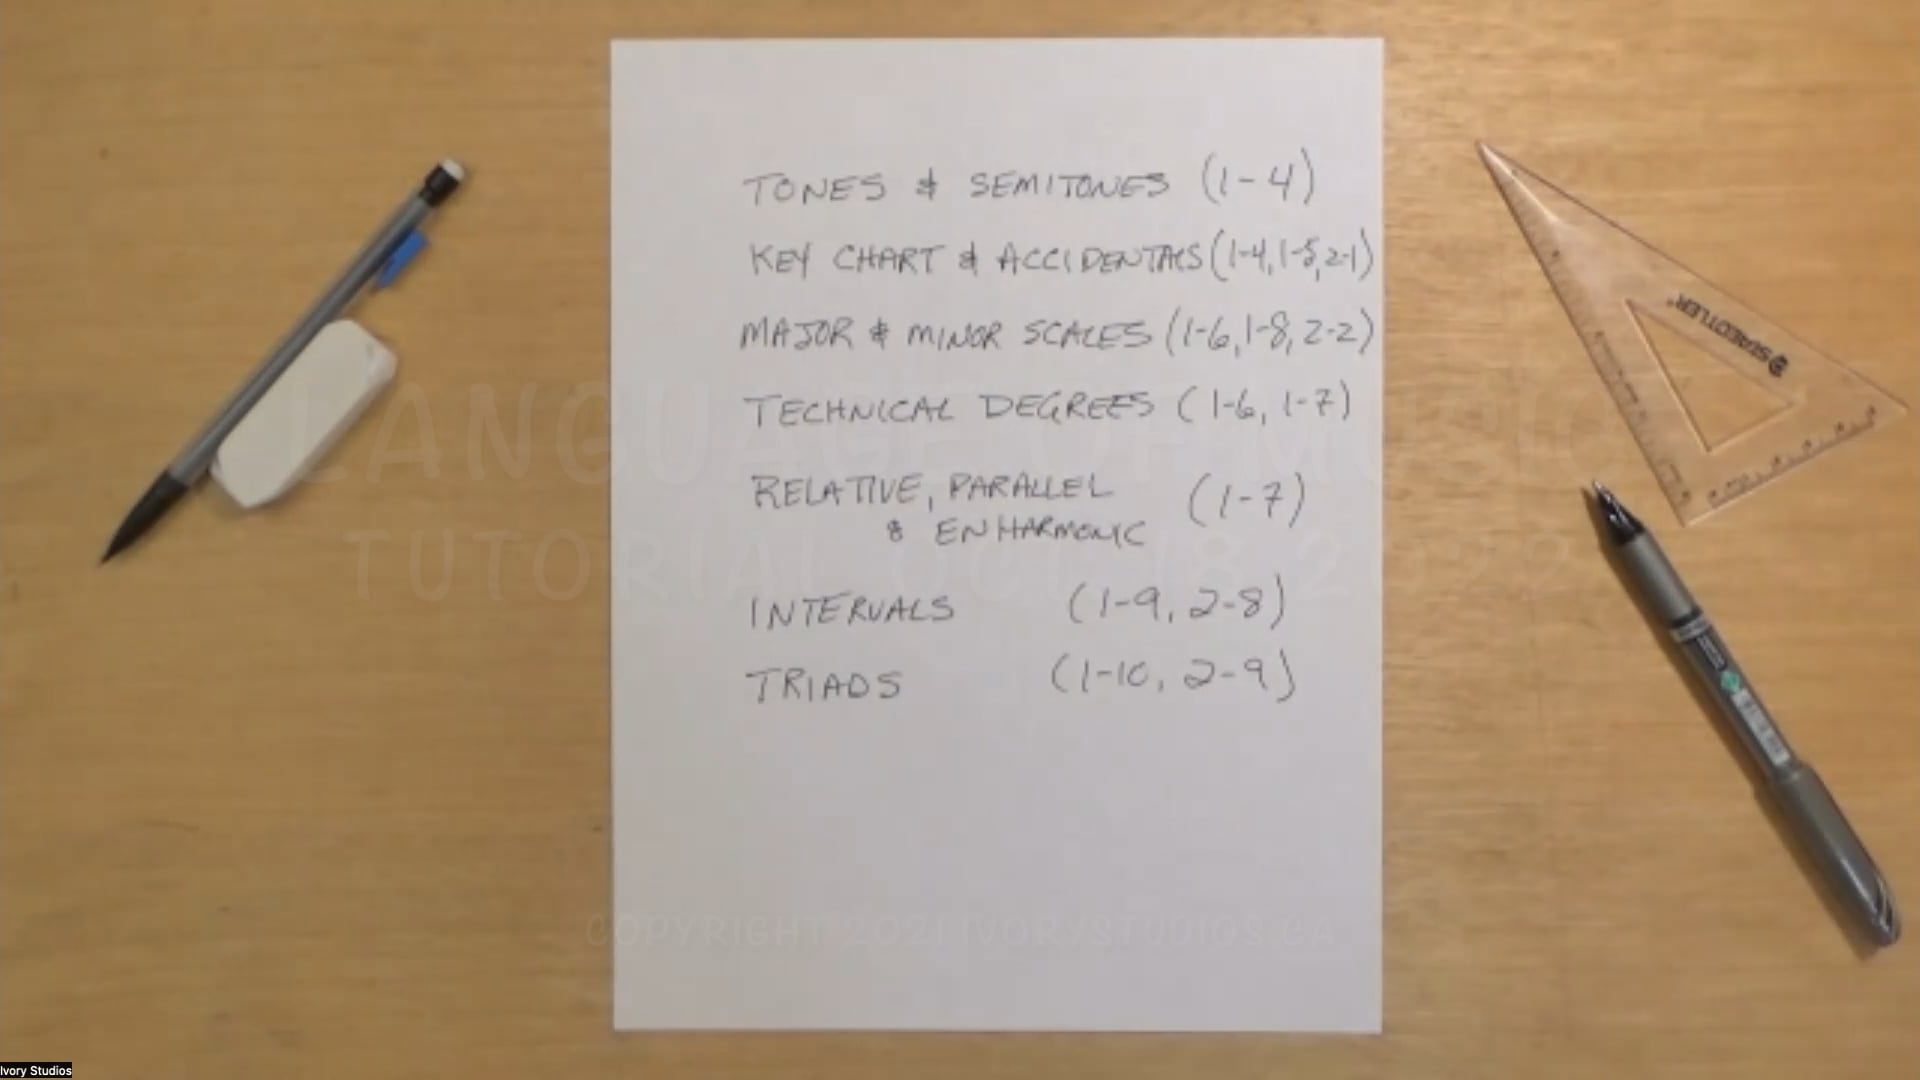 TONES & SEMITONES (1-4)
KEY CHART & ACCIDENTALS (1-4, 1-5, 2-1)
MAJOR & MINOR SCALES (1-6, 1-8, 2-2)
TECHNICAL DEGREES (1-6, 1-7)
RELATIVE, PARALLEL (1-7)
& ENHARMONIC
INTERVALS (1-9, 2-8)
TRIADS (1-10, 2-9)
LANGUAGE OF MUSIC
TUTORIAL OCT 18 2022
COPYRIGHT 2021 IVORYSTUDIOS.CA
STAEDTLER
Ivory Studios